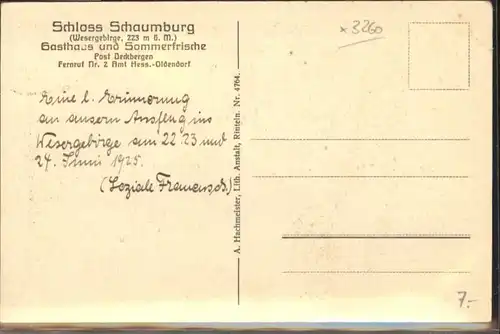 Schloss Schaumburg
(Wesergebirge, 223 m ü. M.)
Gasthaus und Sommerfrische
Post Deckbergen
Fernruf Nr. 2 Amt Hess.-Oldendorf
x3260
Eine l. Erinnerung
an unsern Ausflug ins
Wesergebirge am 22. 23 und
24. Juni 1925.
(Soziale Frauensch.)
A. Hachmeister, Lith. Anstalt, Rinteln. Nr. 4764.
7.-